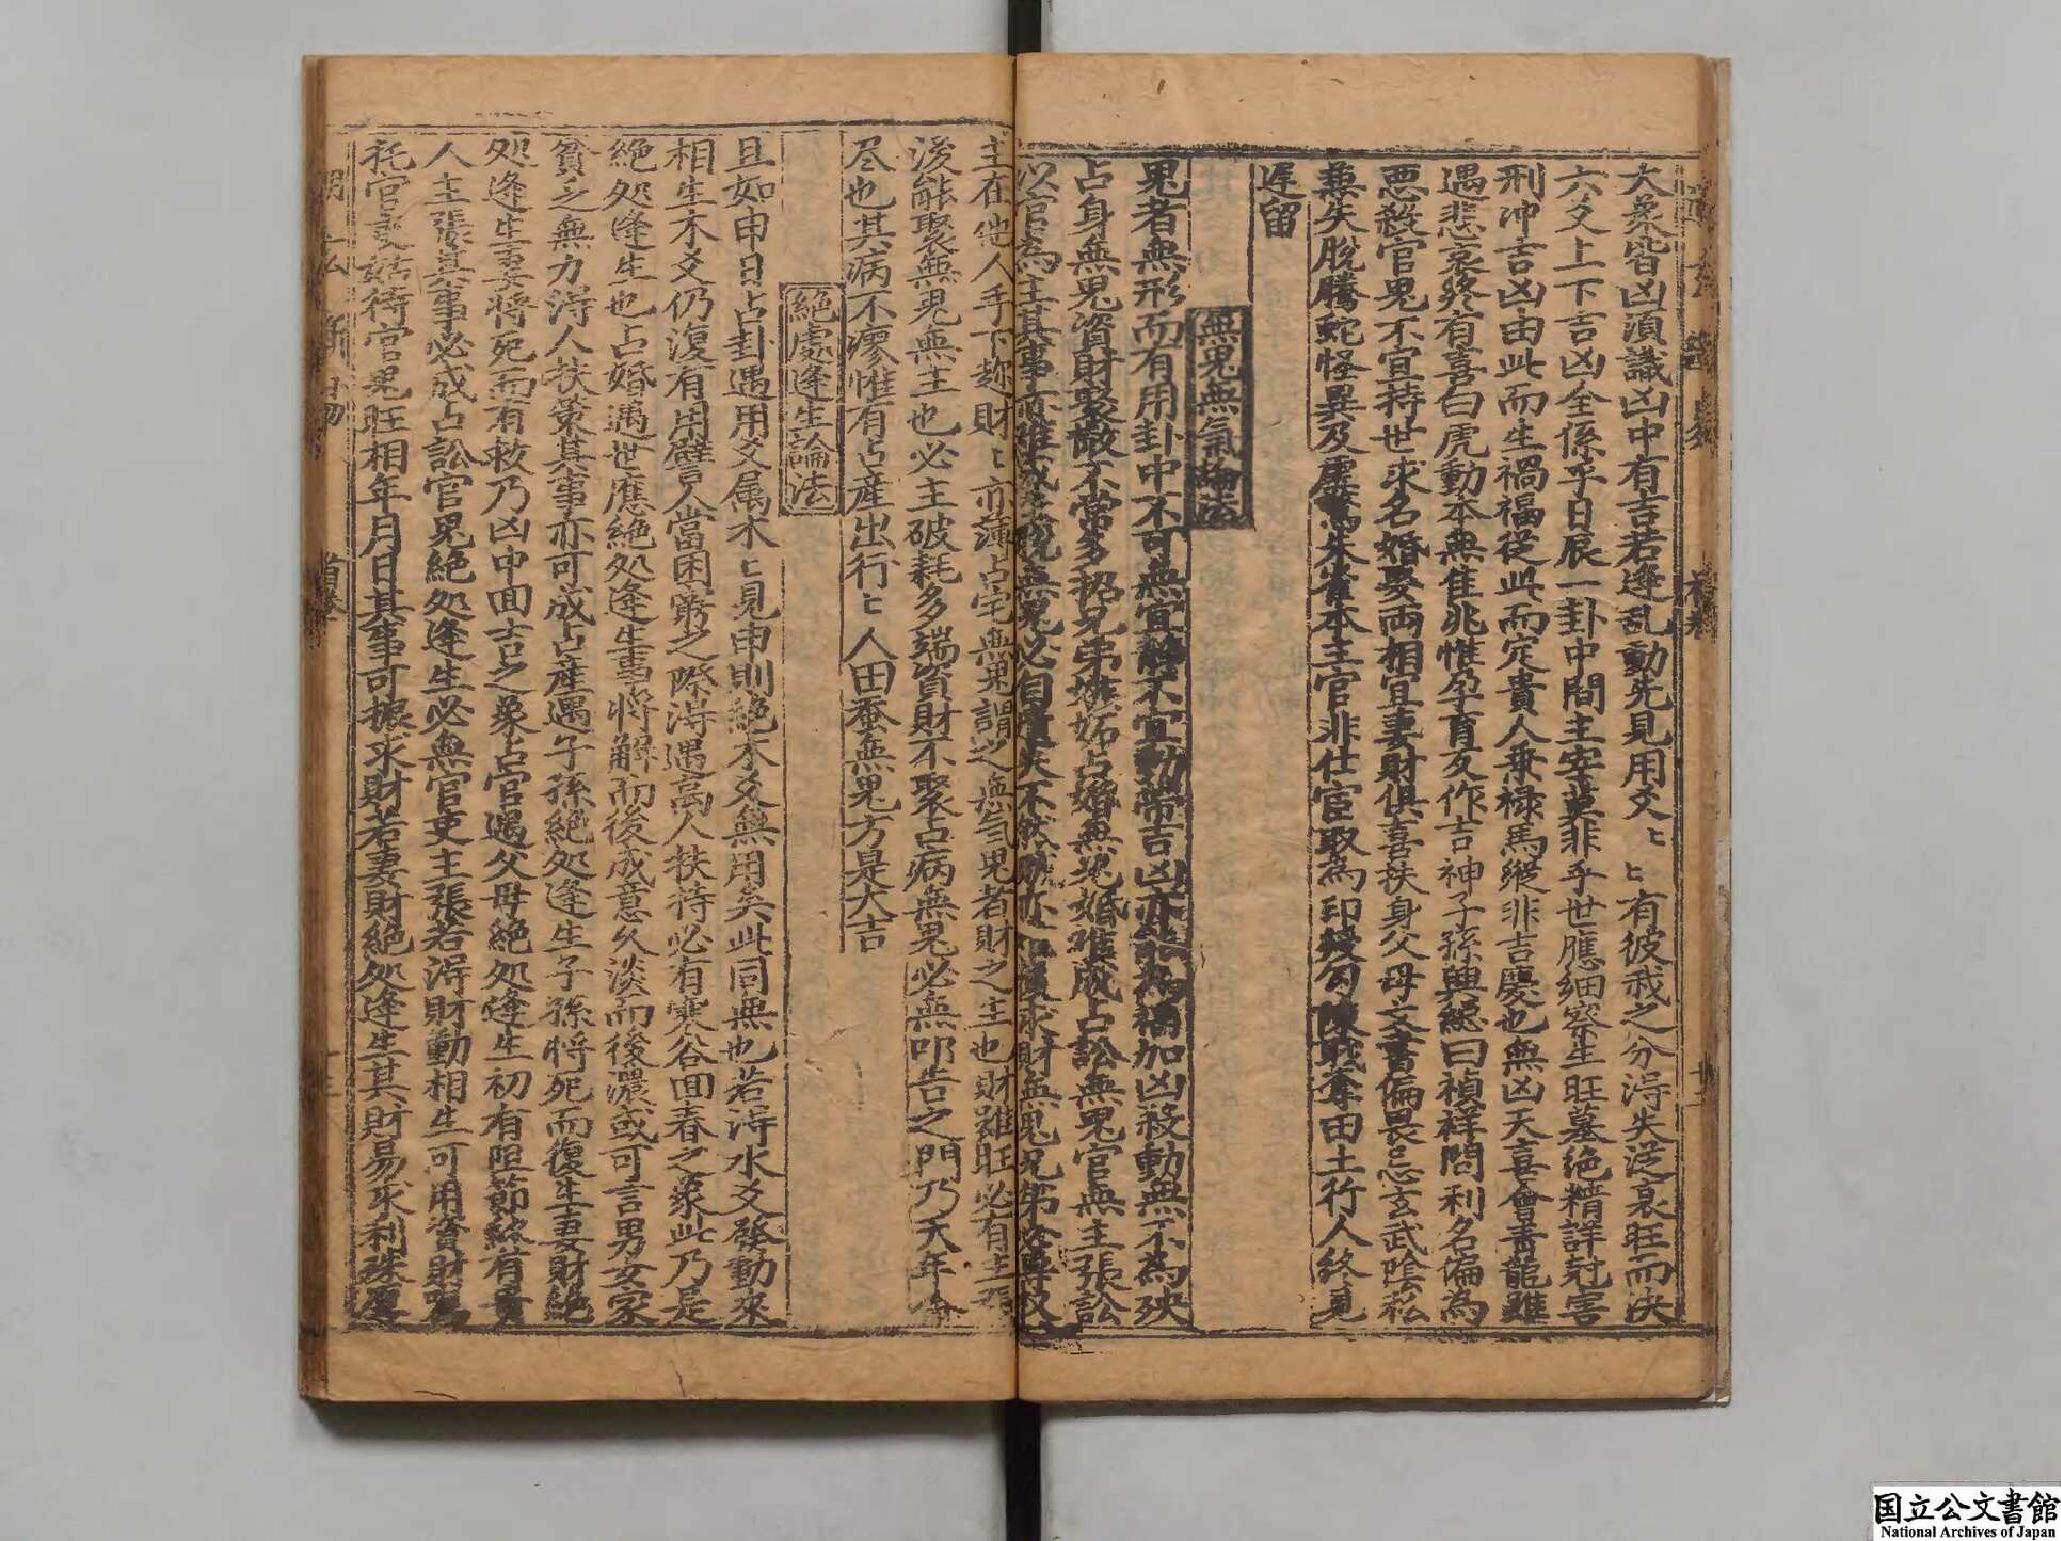 大象皆凶須識凶中有吉若逢乱動先見用爻〻〻有彼我之分淂失
六爻上下吉凶全係乎日辰一卦中間主宰莫非乎世應細察生旺墓絶精詳尅害
刑冲吉凶由此而生禍福從此而定貴人乗禄馬縱非吉慶也無凶天喜會青龍雖
遇悲哀終有喜白虎動本無佳兆惟孕育反作吉神子孫興総曰禎祥問利名偏為
悪殺官鬼不宜持世求名婚娶両相宜妻財俱喜扶身父母文書偏畏忌玄武陰私
兼失脫騰蛇怪異及虛驚朱雀本主官非仕宦取為印綬勾陳職奪田土行人終見
遲留
無鬼無氣論法
鬼者無形而有用卦中不可無宜静不宜動帶吉凶亦為禍加凶殺動無不為殃
占身無鬼資財聚散不常多招兄弟嫉妬占婚無鬼婚難成占訟無鬼官無主張訟
以官為主其事亦難成
主在他人手下趂財〻亦薄占宅無鬼謂之無氣鬼者財之主也財雖旺必有主張
後能聚無鬼無主也必主破耗多端資財不聚占病無鬼必無叩告之門乃天年
尽也其病不瘳惟有占產出行〻人田蚕無鬼方是大吉
絕處逢生論法
且如申日占卦遇用爻属木〻見申則絕木爻無用矣此同無也若淂水爻發動來
相生木爻仍復有用譬人當困窮之際淂遇高人扶持必有寒谷囬春之象此乃是
絕処逢生也占婚遇世應絕処逢生事將解而後成意久淡而後濃或可言男女家
貧之無力淂人扶策其事亦可成占產遇子孫絕処逢生子孫將死而復生妻財絕
処逢生妻將死而有救乃凶中囬吉之象占官遇父母絕処逢生初有阻節終有貴
人主張其事必成占訟官鬼絕処逢生必無官吏主張若淂財動相生可用資財囑
托官吏姑待官鬼旺相年月日其事可振求財若妻財絕処逢生其財易求利殊厚
国立公文書館
National Archives of Japan